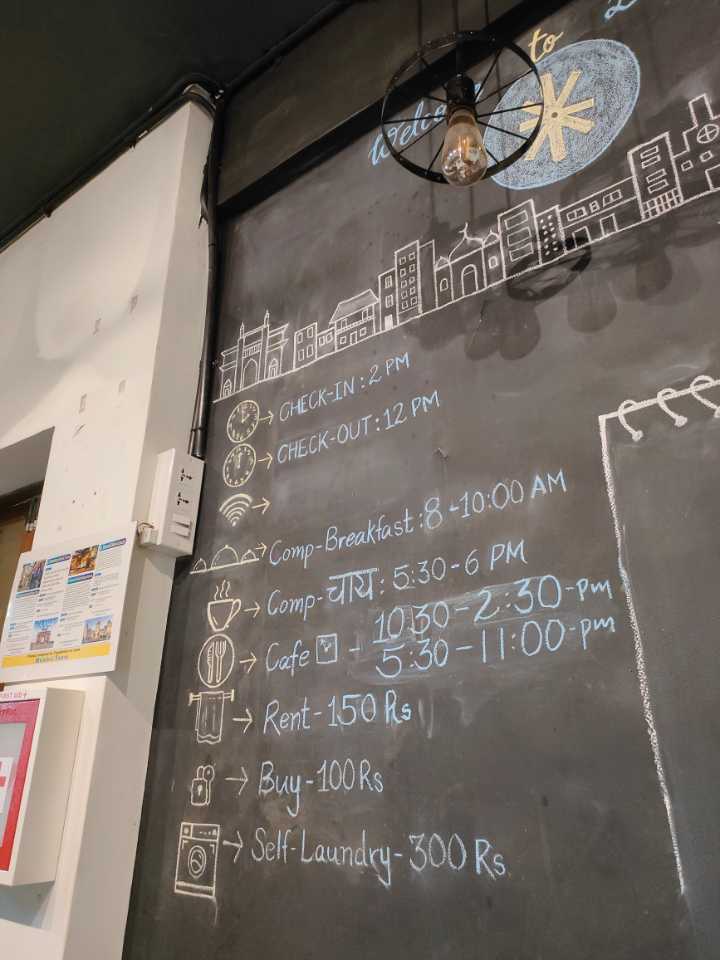 Welcome to
CHECK-IN : 2 PM
CHECK-OUT : 12 PM
Comp-Breakfast : 8 - 10:00 AM
Comp-चाय : 5:30 - 6 PM
Cafe - 10:30 - 2:30-pm
5:30 - 11:00-pm
Rent - 150 Rs
Buy - 100 Rs
Self-Laundry - 300 Rs
FIRST AID